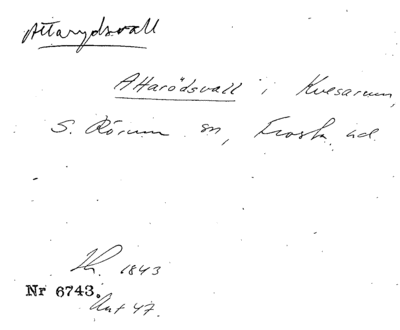 Attarydsvall
Attarödsvall i Kvesarum,
S. Rörum sn, Frosta hd.
Th. 1843
Nr 6743.
Ant 47.